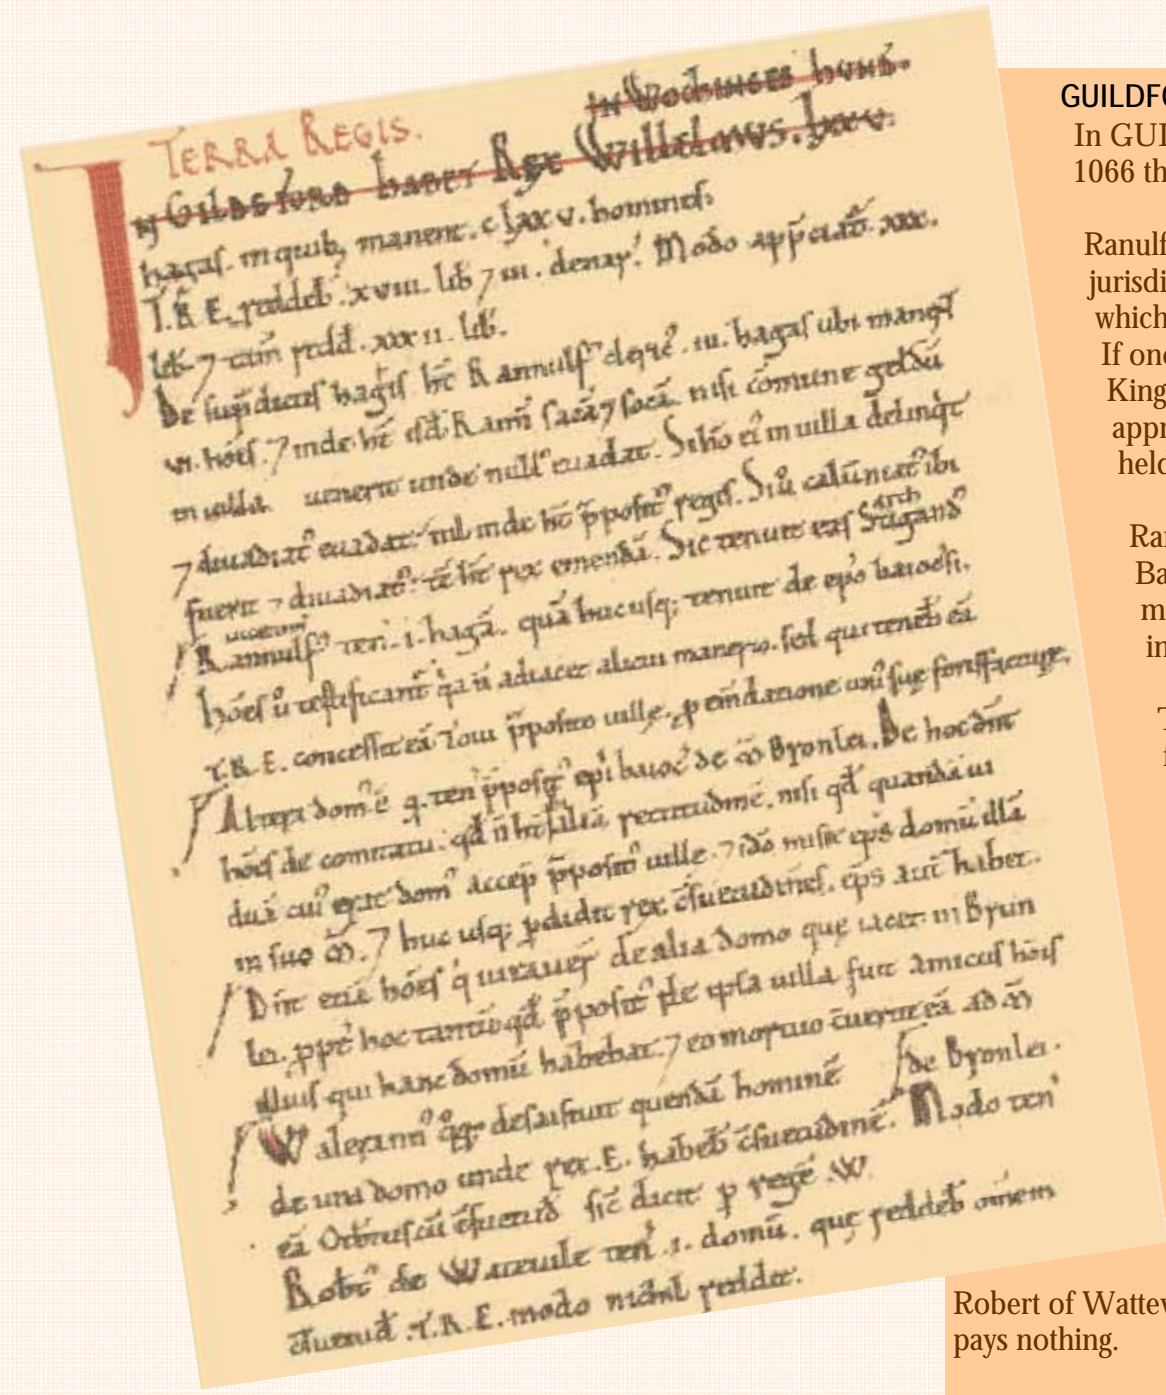 TERRA REGIS.
IN WOCHINGES HUND.
IN GILDEFORD HABET REX WILLELMUS. lxxv.
hagas. in quib; manent. c lxx v. homines.
T.R.E. reddeb. xviii. lib 7 iii. denar. Modo appciat xxx.
lib. 7 tam redd. xxx ii. lib.
De supdictis hagis ht Rannulf cleric. iii. hagas ubi manent
vi. hoes. 7 inde ht isd Rann saca 7 soca. nisi comune geldu
in uilla uenerit unde null euadat. Si ho ei in uilla delinqt
7 diuadiat euadat. nil inde ht pposit regis. Si u caluniat ibi
fuerit 7 diuadiat. tc ht rex emenda. Sic tenuit eas Stigand
arch
Rannulf ten. i. haga. qua hucusq; tenuit de epo baiocsi.
uicecom
hoes u testificant qa n adiacet alicui manerio. sed qui teneb ea
T.R.E. concessit ea Toui pposito uille. p emdatione uni sue forisfacture.
Altera dom e q ten pposit epi baioc de m Bronlei. De hoc dnt
hoes de comitatu. qd n ht alia rectitudine. nisi qd quanda ui
dua cui erat dom accep pposit uille. 7 ido misit eps domu illa
in suo m. 7 huc usq; pdidit rex csuetudines. eps aut habet.
Dnt etia hoes q iurauer de alia domo que iacet in Brun
lei. ppt hoc tantu qd pposit de ipsa uilla fuit amicus hois
illius qui hanc domu habebat. 7 eo mortuo cuertit ea ad m
de Bronlei.
Walerann qq; desaisiuit quenda homine
de una domo unde rex .E. habeb csuetudine. Modo ten
ea Otbertus cu csuetud sic dicit p rege .W.
Robt de Wateuile ten .i. domu. que reddeb omem
csuetud .T.R.E. modo nichil reddit.
GUILDFO
In GUI
1066 th
Ranulf
jurisdi
which
If one
King
appr
held
Ran
Ba
m
in
Robert of Wattev
pays nothing.